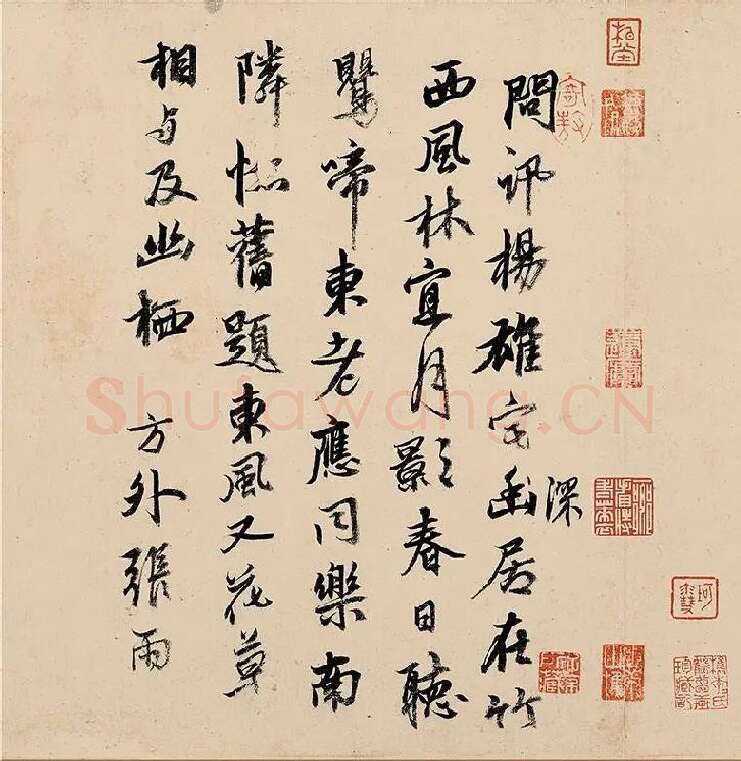 問訊楊雄宅幽居在竹
深
西風林宜月影春日聽
鸎啼東老應同樂南
隣憶舊題東風又花草
相与及幽栖 方外張雨
Shufawang.CN